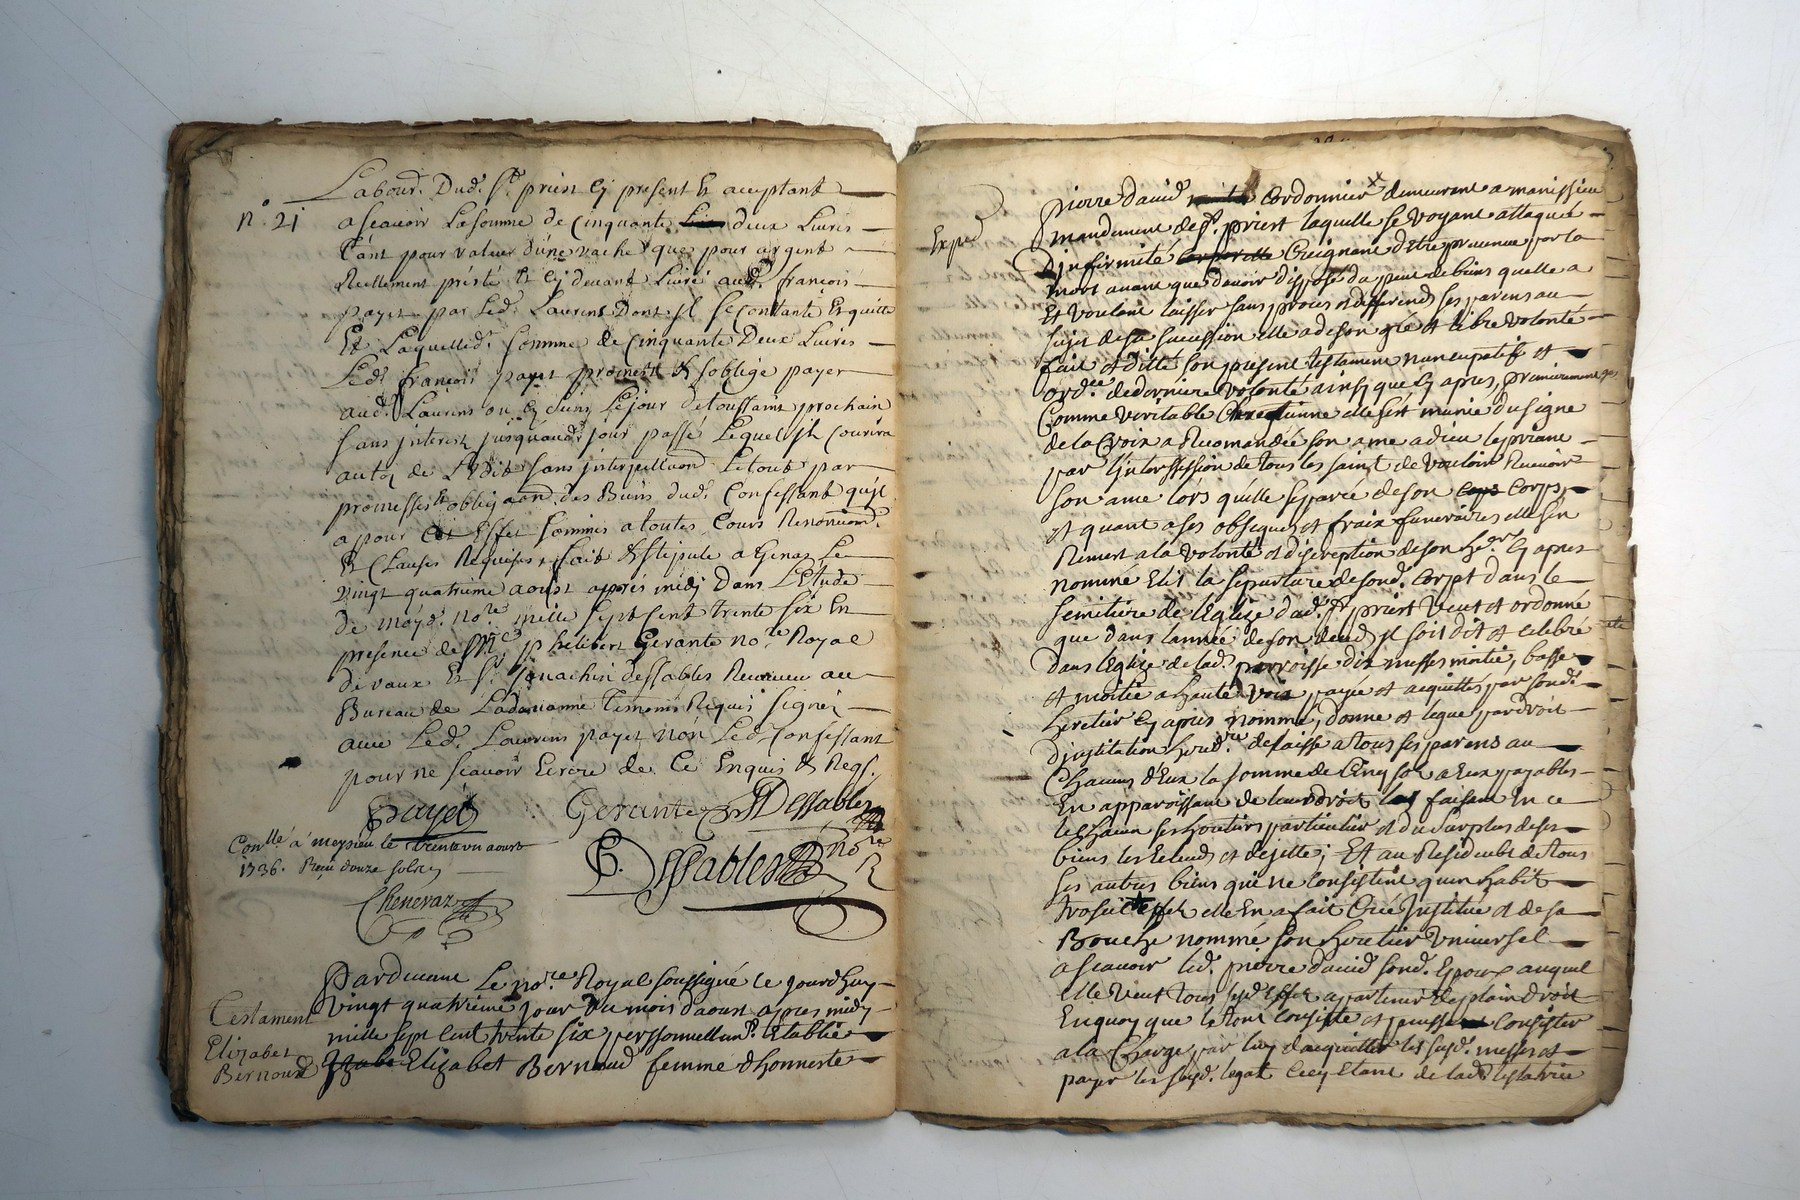 Labour. Dud. St. priest Cy present & acceptant
n°. 21
a scavoir La somme de Cinquante deux Livres
tant pour valeur d'une vache que pour argent
Reellement presté & Cy devant Livré aud. françois
payet par Led. Laurens Dont il se Contante & quitte
Et Laquelled. somme de Cinquante Deux Livres
Led. françois payet promest & s'oblige payer
aud. Laurens ou Cy siens Le jour de toussaint prochain
sans interest jusqu'aud. jour passé Lequel il Courira
aux de L'Edit sans interpellaon. Le tout par
promesses & obligaon. des Biens dud. Confessant qu'il
a pour Cet Effet soumis a toutes Cours Renonciaon.
& Clauses Requises, fait & stipulé a Genas Le
vingt quatrieme aoust appres midy Dans L'Etude
de moyd. no.re mille sept Cent trente six En
presence de Me. philibert Gerante no.re Royal
de vaux Et Sr. Dessables Receveur au
Bureau de La doüanne Temoins Requis signéz
avec Led. Laurens payet non Led. Confessant
pour ne scavoir Ecrire de Ce Enquis & Reqs.
Payet Gerante Dessables
Conllé á meyzieu le trente un aoust
1736. Receu douze sols
Dessables no.re R
Cheneraz
Pardevant Le no.re Royal soussigné ce jourdhuy
vingt quatrieme jour Du mois d'aoust apres midy
mille sept cent trente six personnellemt. Etablie
Elizabet Bernoud femme d'honneste
Testament
Elizabet
Bernoud
Exped
pierre david Cordonnier demeurant a manissieu
mandement de St. priest laquelle se voyant attaquée
D'infirmité Creignant d'etre prevenue par la
mort avant que d'avoir disposé du peu de biens quelle a
Et voulant laisser sans proces et differends ses parens au
sujet de sa succession elle a de son gré et libre volonté
fait et ditté son present testament nuncupatif et
ord.ce de derniere volonté ainsy que Cy apres, premierement
Comme veritable Chretienne elle s'est munie du signe
de la Croix a Recomandée son ame a dieu le priant
par L'intersession de tous les saints de vouloir Recevoir
son ame lors qu'elle separée de son Corps,
et quant a ses obseques et fraix funeraires elle s'en
Remest a la volonté et discreption de son her. Cy apres
nommé Elit la sepurture de sond. Corps dans le
semitiere de l'Eglise dud. St. priest veut et ordonné
que dans l'année de son deced il soit dit et celebré
dans l'Eglise de lad. parroisse dix messes moitié basse
et moitié a haute voix payée et acquittés par sond.
heretier Cy apres nommé, donne et legue par droit
d'institution hered.re delaisse a tous ses parens au
Chacuns d'Eux la somme de Cinq sol a Eux payables
En apparoissant de leur droit les faisant En ce
ses heretiers particulier et du surplus de ses
biens les Exclud et dejette; Et au Residu de tous
ses autres biens qui ne Consistent qu'en habit
trosel Effet elle En a fait Créé institué et de sa
Bouche nommé son heretier Universel
a scavoir led. pierre david sond. Epoux auquel
elle veut tous sesd. Effet appartenir de plain droit
En quoy que le tout Consiste et puisse Consister
a la Charge par luy d'acquitter les susd. messes et
payer les susd. legat Cecy Etant de lad. testatrice